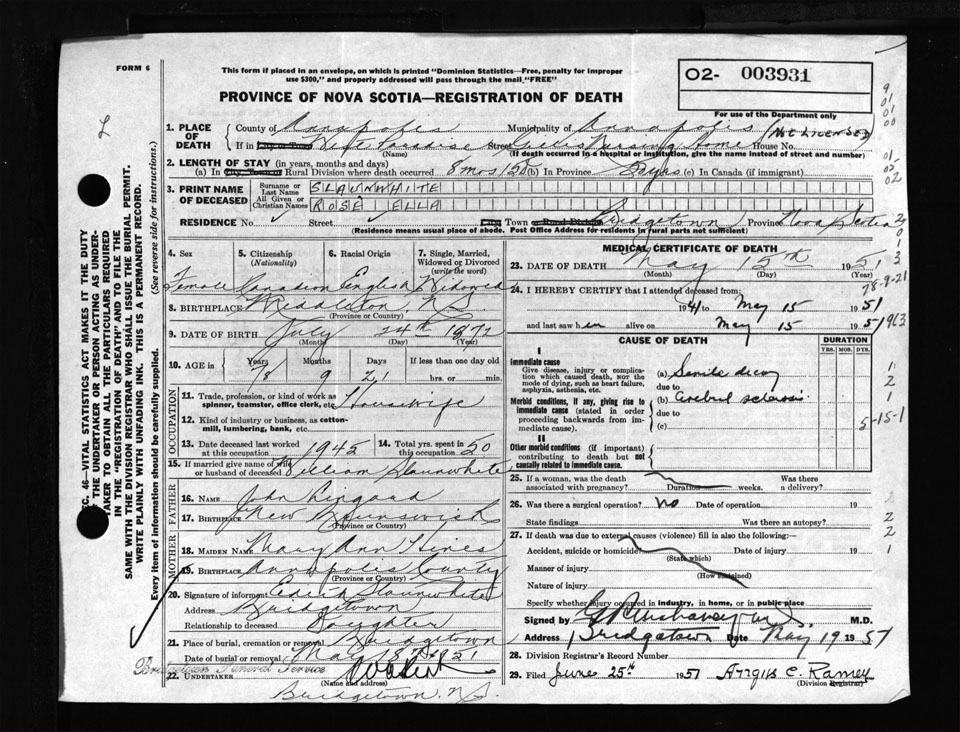 FORM 6
This form if placed in an envelope, on which is printed "Dominion Statistics—Free, penalty for improper
use $300," and properly addressed will pass through the mail "FREE"
O2- 003931
For use of the Department only
PROVINCE OF NOVA SCOTIA—REGISTRATION OF DEATH
1. PLACE OF DEATH County of Annapolis Municipality of Annapolis (NOT LICENSED)
If in West Paradise Street Nursing Home House No.
(Name) (If death occurred in a hospital or institution, give the name instead of street and number)
2. LENGTH OF STAY (in years, months and days)
(a) In Rural Division where death occurred 8 mos (b) In Province (c) In Canada (if immigrant)
3. PRINT NAME OF DECEASED Surname or Last Name SLAUNWHITE
All Given or Christian Names ROSE ELLA
RESIDENCE No. Street Town Bridgetown Province Nova Scotia
(Residence means usual place of abode. Post Office Address for residents in rural parts not sufficient)
4. Sex 5. Citizenship (Nationality) 6. Racial Origin 7. Single, Married, Widowed or Divorced (write the word)
Female Canadian English Widowed
8. BIRTHPLACE Middleton, N.S.
(Province or Country)
9. DATE OF BIRTH July 24th
(Month) (Day) (Year)
10. AGE in Years Months Days If less than one day old
78 9 21 hrs. or min.
OCCUPATION
11. Trade, profession, or kind of work as spinner, teamster, office clerk, etc. Housewife
12. Kind of industry or business, as cotton-mill, lumbering, bank, etc.
13. Date deceased last worked at this occupation 1945 14. Total yrs. spent in this occupation 50
15. If married give name of wife or husband of deceased William Slaunwhite
FATHER
16. NAME John
17. BIRTHPLACE New Brunswick
(Province or Country)
MOTHER
18. MAIDEN NAME Mary Ann Hines
19. BIRTHPLACE Annapolis County
(Province or Country)
20. Signature of informant Edith Slaunwhite
Address Bridgetown
Relationship to deceased Daughter
21. Place of burial, cremation or removal Bridgetown
Date of burial or removal May 18th 1951
Bridgetown Funeral Service
22. UNDERTAKER
(Name and address)
Bridgetown, N.S.
MEDICAL CERTIFICATE OF DEATH
23. DATE OF DEATH May 15th 1951
(Month) (Day) (Year)
78-9-21
24. I HEREBY CERTIFY that I attended deceased from:
1941 May 15 1951
and last saw h er alive on May 15 1951
963
CAUSE OF DEATH DURATION
YRS. MOS. DYS.
I
Immediate cause
Give disease, injury or complication which caused death, nor the mode of dying, such as heart failure, asphyxia, asthenia, etc.
(a) Senile decay
due to
Morbid conditions, if any, giving rise to immediate cause (stated in order proceeding backwards from immediate cause).
(b) Cerebral sclerosis
due to
(c)
II
Other morbid conditions (if important) contributing to death but not causally related to immediate cause.
25. If a woman, was the death associated with pregnancy? Duration weeks. Was there a delivery?
26. Was there a surgical operation? No Date of operation 19
State findings Was there an autopsy?
27. If death was due to external causes (violence) fill in also the following:—
Accident, suicide or homicide? Date of injury 19
(State which)
Manner of injury
(How sustained)
Nature of injury
Specify whether injury occurred in industry, in home, or in public place
Signed by M.D.
Address Bridgetown Date May 19 1951
28. Division Registrar's Record Number
29. Filed June 25th 1951 Angus C. Ramey
(Division Registrar)
SEC. 46—VITAL STATISTICS ACT MAKES IT THE DUTY
OF THE UNDERTAKER OR PERSON ACTING AS UNDER-
TAKER TO OBTAIN ALL THE PARTICULARS REQUIRED
IN THE "REGISTRATION OF DEATH" AND TO FILE THE
SAME WITH THE DIVISION REGISTRAR WHO SHALL ISSUE THE BURIAL PERMIT.
WRITE PLAINLY WITH UNFADING INK. THIS IS A PERMANENT RECORD.
Every item of information should be carefully supplied. (See reverse side for instructions.)